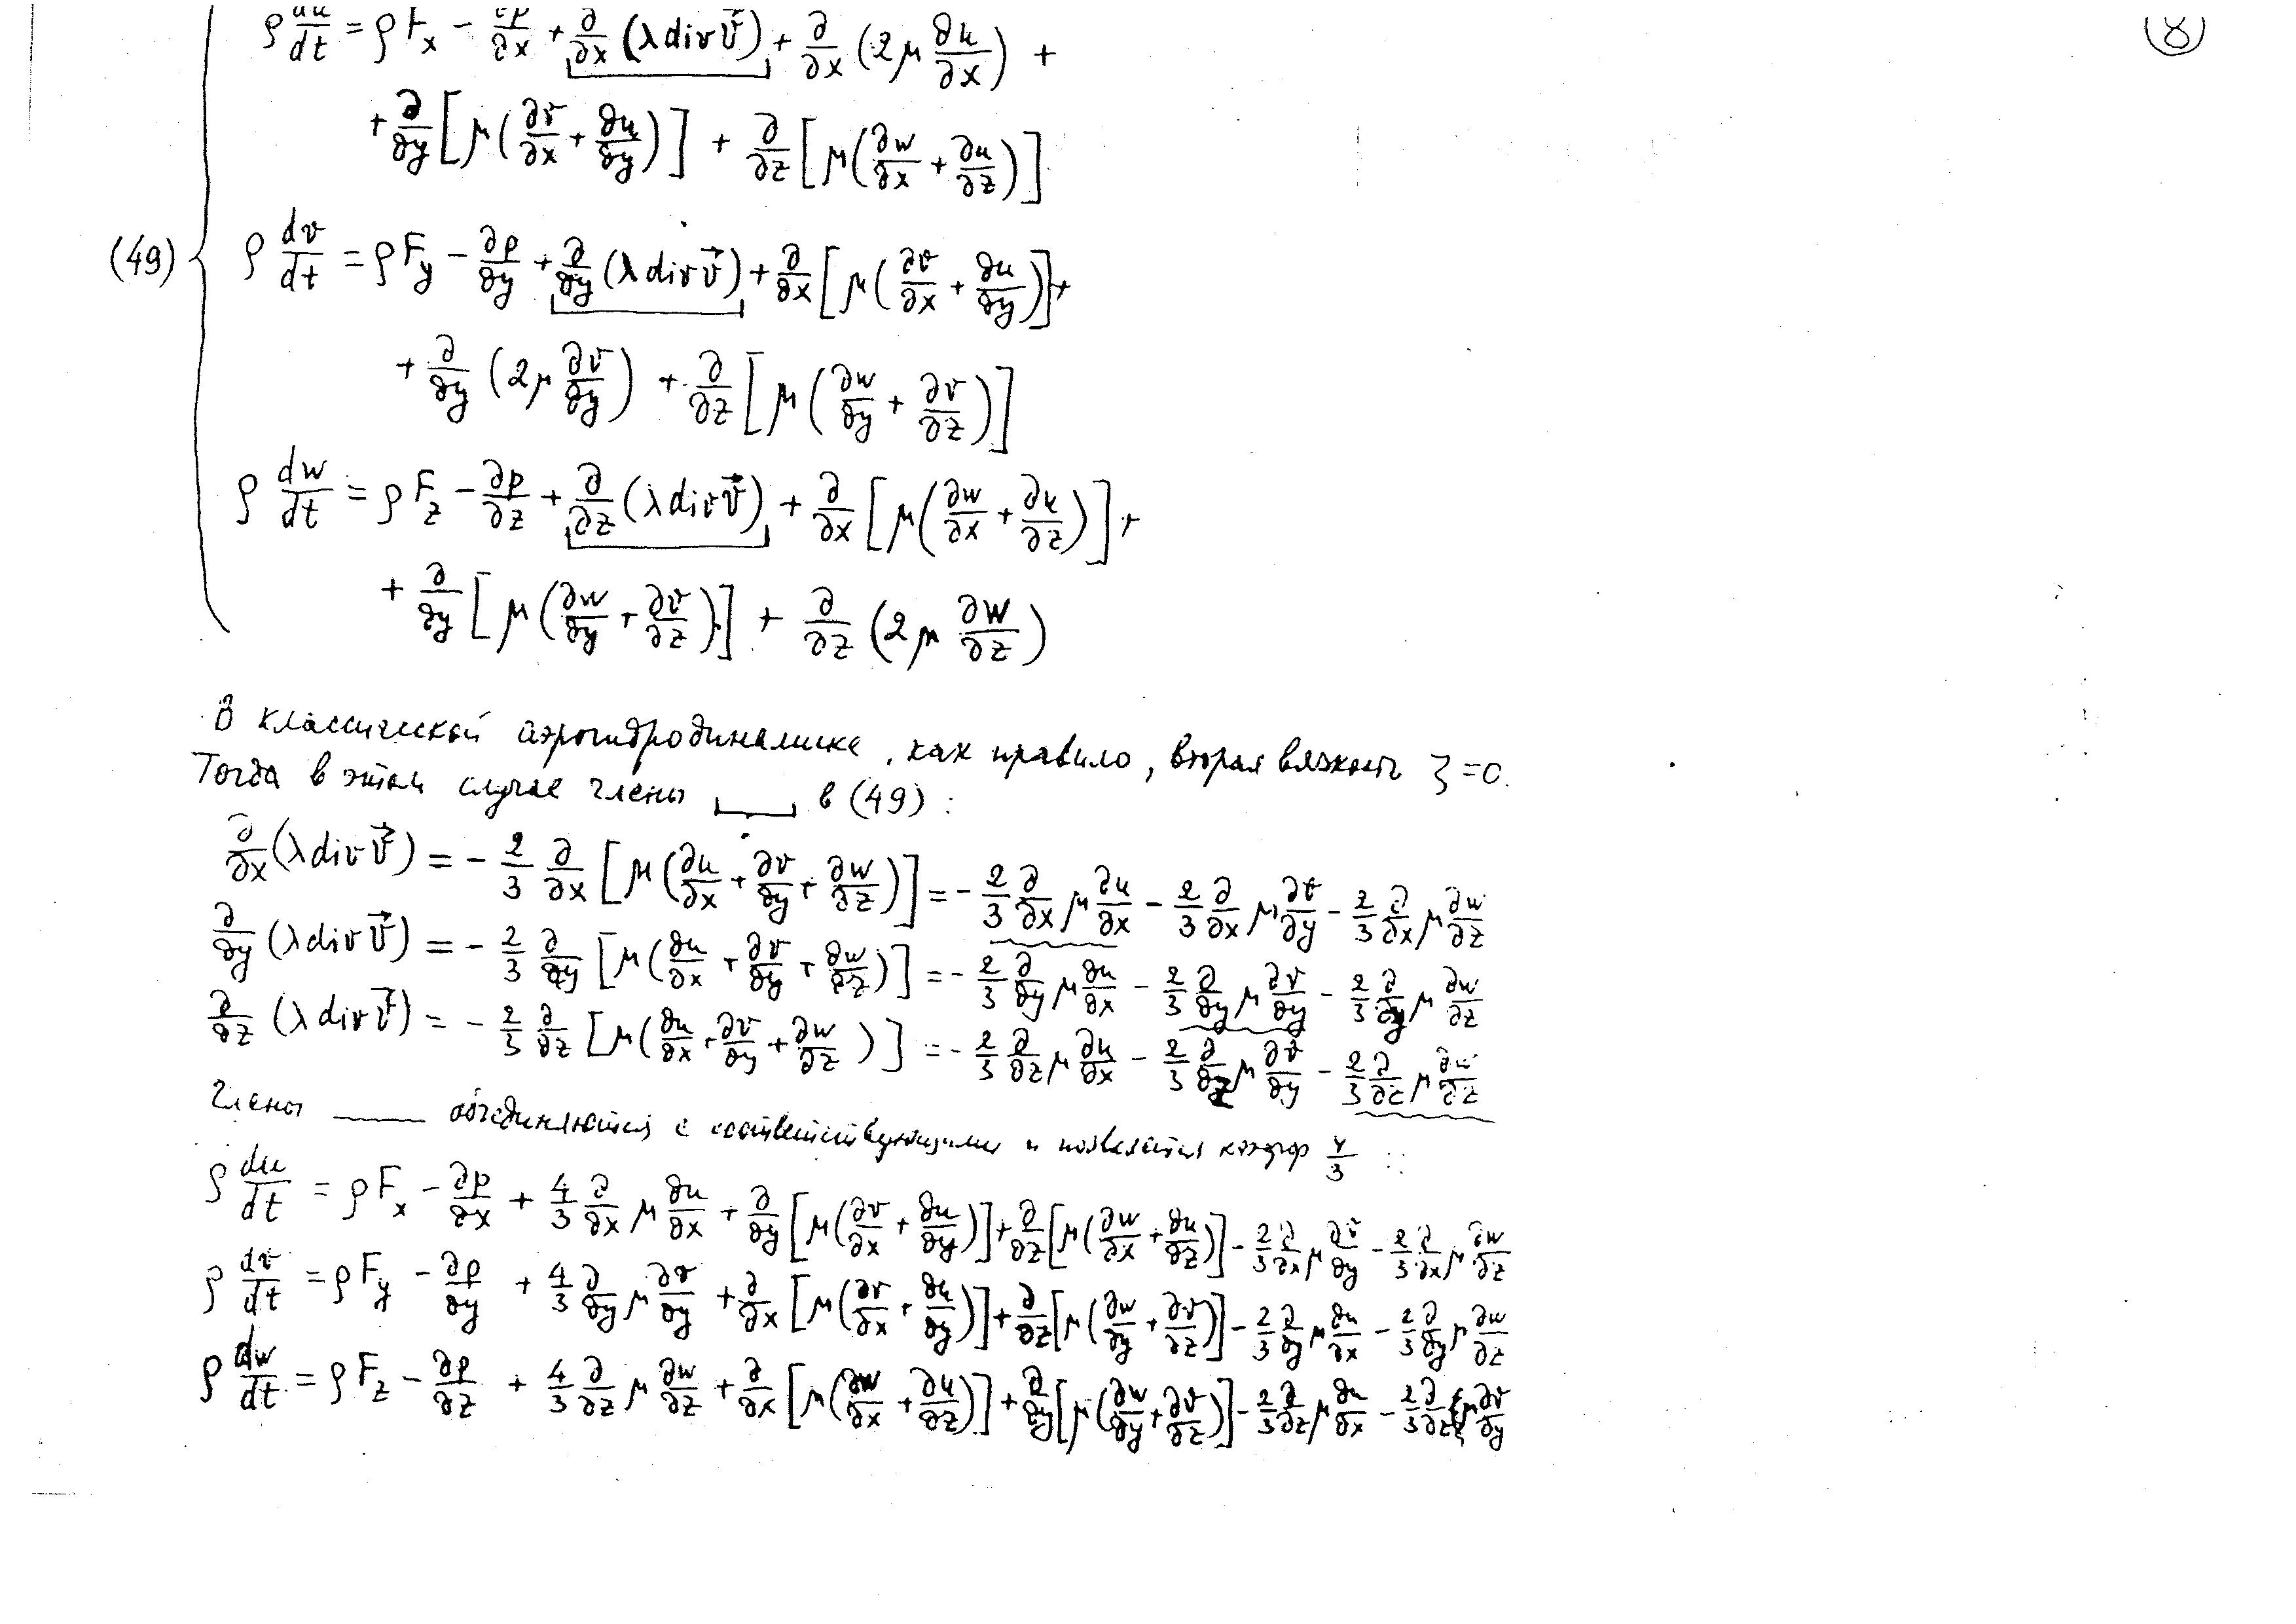 (8)
ρ du/dt = ρF_x − ∂p/∂x + ∂/∂x (λ div v⃗) + ∂/∂x (2μ ∂u/∂x) +
+ ∂/∂y [μ(∂v/∂x + ∂u/∂y)] + ∂/∂z [μ(∂w/∂x + ∂u/∂z)]
(49) { ρ dv/dt = ρF_y − ∂p/∂y + ∂/∂y (λ div v⃗) + ∂/∂x [μ(∂v/∂x + ∂u/∂y)] +
+ ∂/∂y (2μ ∂v/∂y) + ∂/∂z [μ(∂w/∂y + ∂v/∂z)]
ρ dw/dt = ρF_z − ∂p/∂z + ∂/∂z (λ div v⃗) + ∂/∂x [μ(∂w/∂x + ∂u/∂z)] +
+ ∂/∂y [μ(∂w/∂y + ∂v/∂z)] + ∂/∂z (2μ ∂w/∂z)
В классической аэрогидродинамике, как правило, вторая вязкость ζ = 0.
Тогда в этом случае члены в (49):
∂/∂x (λ div v⃗) = − 2/3 ∂/∂x [μ(∂u/∂x + ∂v/∂y + ∂w/∂z)] = − 2/3 ∂/∂x μ ∂u/∂x − 2/3 ∂/∂x μ ∂v/∂y − 2/3 ∂/∂x μ ∂w/∂z
∂/∂y (λ div v⃗) = − 2/3 ∂/∂y [μ(∂u/∂x + ∂v/∂y + ∂w/∂z)] = − 2/3 ∂/∂y μ ∂u/∂x − 2/3 ∂/∂y μ ∂v/∂y − 2/3 ∂/∂y μ ∂w/∂z
∂/∂z (λ div v⃗) = − 2/3 ∂/∂z [μ(∂u/∂x + ∂v/∂y + ∂w/∂z)] = − 2/3 ∂/∂z μ ∂u/∂x − 2/3 ∂/∂z μ ∂v/∂y − 2/3 ∂/∂z μ ∂w/∂z
Члены объединяются с соответствующими и появляется коэфф 4/3 :
ρ du/dt = ρF_x − ∂p/∂x + 4/3 ∂/∂x μ ∂u/∂x + ∂/∂y [μ(∂v/∂x + ∂u/∂y)] + ∂/∂z [μ(∂w/∂x + ∂u/∂z)] − 2/3 ∂/∂x μ ∂v/∂y − 2/3 ∂/∂x μ ∂w/∂z
ρ dv/dt = ρF_y − ∂p/∂y + 4/3 ∂/∂y μ ∂v/∂y + ∂/∂x [μ(∂v/∂x + ∂u/∂y)] + ∂/∂z [μ(∂w/∂y + ∂v/∂z)] − 2/3 ∂/∂y μ ∂u/∂x − 2/3 ∂/∂y μ ∂w/∂z
ρ dw/dt = ρF_z − ∂p/∂z + 4/3 ∂/∂z μ ∂w/∂z + ∂/∂x [μ(∂w/∂x + ∂u/∂z)] + ∂/∂y [μ(∂w/∂y + ∂v/∂z)] − 2/3 ∂/∂z μ ∂u/∂x − 2/3 ∂/∂z μ ∂v/∂y